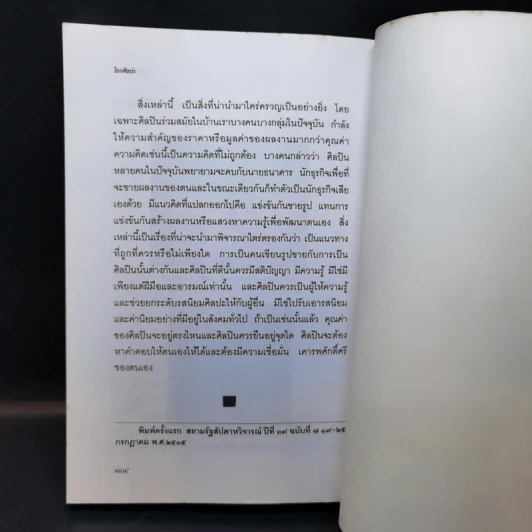 โลกศิลปะ
สิ่งเหล่านี้ เป็นสิ่งที่น่านำมาใคร่ครวญเป็นอย่างยิ่ง โดย
เฉพาะศิลปินร่วมสมัยในบ้านเราบางคนบางกลุ่มในปัจจุบัน กำลัง
ให้ความสำคัญของราคาหรือมูลค่าของผลงานมากกว่าคุณค่า
ความคิดเช่นนี้เป็นความคิดที่ไม่ถูกต้อง บางคนกล่าวว่า ศิลปิน
หลายคนในปัจจุบันพยายามจะคบกับนายธนาคาร นักธุรกิจเพื่อที่
จะขายผลงานของตนและในขณะเดียวกันก็ทำตัวเป็นนักธุรกิจเสีย
เองด้วย มีแนวคิดที่แปลกออกไปคือ แข่งขันกันขายรูป แทนการ
แข่งขันกันสร้างผลงานหรือแสวงหาความรู้เพื่อพัฒนาตนเอง สิ่ง
เหล่านี้เป็นเรื่องที่น่าจะนำมาพิจารณาไตร่ตรองกันว่า เป็นแนวทาง
ที่ถูกที่ควรหรือไม่เพียงใด การเป็นคนเขียนรูปขายกับการเป็น
ศิลปินนั้นต่างกันและศิลปินที่ดีนั้นควรมีสติปัญญา มีความรู้ มิใช่มี
เพียงแต่ฝีมือและอารมณ์เท่านั้น และศิลปินควรเป็นผู้ให้ความรู้
และช่วยยกระดับรสนิยมศิลปะให้กับผู้อื่น มิใช่ไปรับเอารสนิยม
และค่านิยมอย่างที่มีอยู่ในสังคมทั่วไป ถ้าเป็นเช่นนั้นแล้ว คุณค่า
ของศิลปินจะอยู่ตรงไหนและศิลปินควรยืนอยู่จุดใด ศิลปินจะต้อง
หาคำตอบให้ตนเองให้ได้และต้องมีความเชื่อมั่น เคารพศักดิ์ศรี
ของตนเอง
พิมพ์ครั้งแรก สยามรัฐสัปดาหวิจารณ์ ปีที่ ๓๙ ฉบับที่ ๗ ๑๙-๒๕
กรกฎาคม พ.ศ.๒๕๓๕